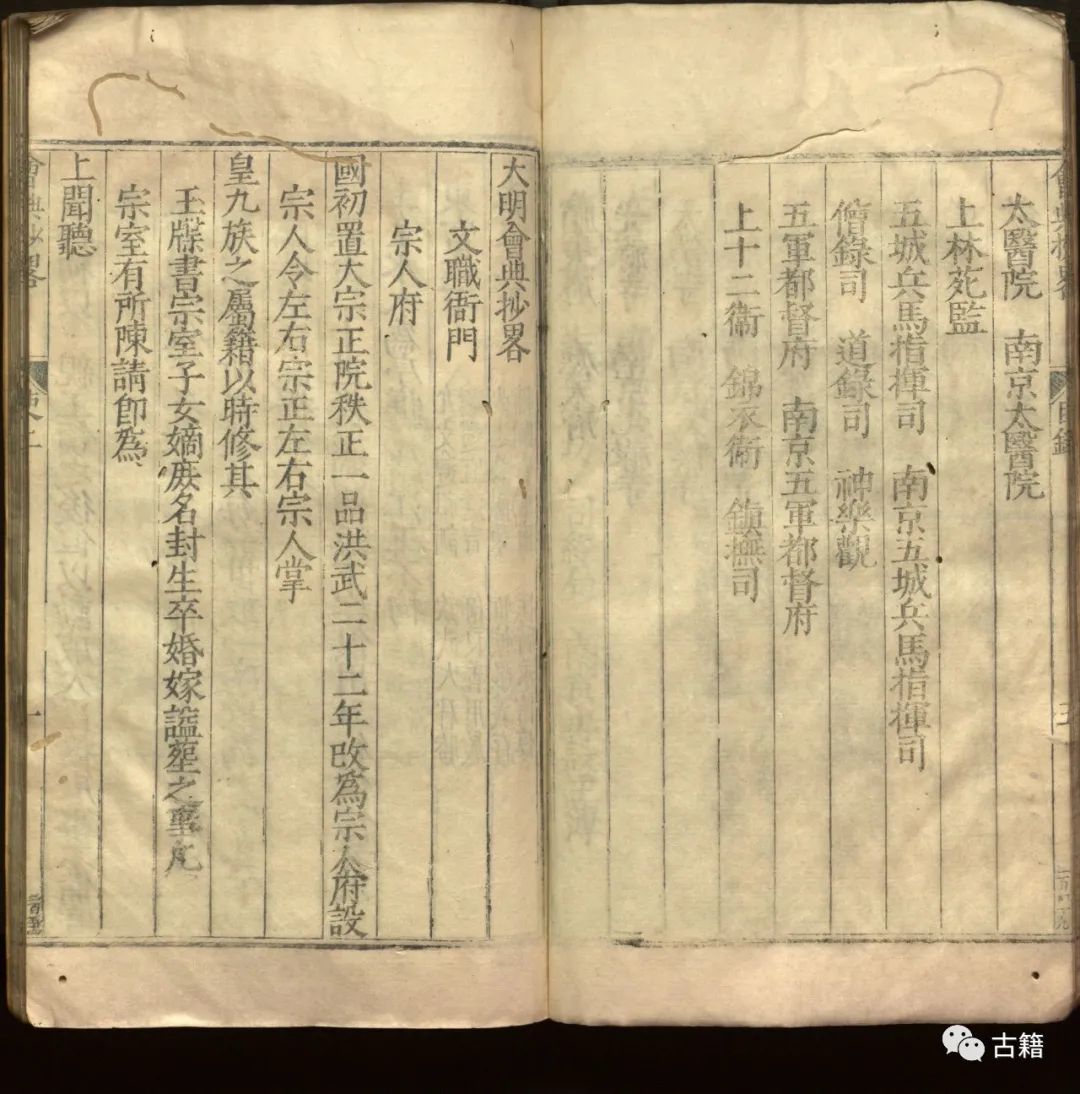 太醫院　南京太醫院
上林苑監
五城兵馬指揮司　南京五城兵馬指揮司
僧錄司　道錄司　神樂觀
五軍都督府　南京五軍都督府
上十二衞　錦衣衞　鎮撫司
大明會典抄畧
文職衙門
宗人府
國初置大宗正院秩正一品洪武二十二年改為宗人府設
宗人令左右宗正左右宗人掌
皇九族之屬籍以時修其
玉牒書宗室子女嫡庶名封生卒婚嫁諡塟之事凡
宗室有所陳請卽為
上聞聽
會典抄畧
古籍